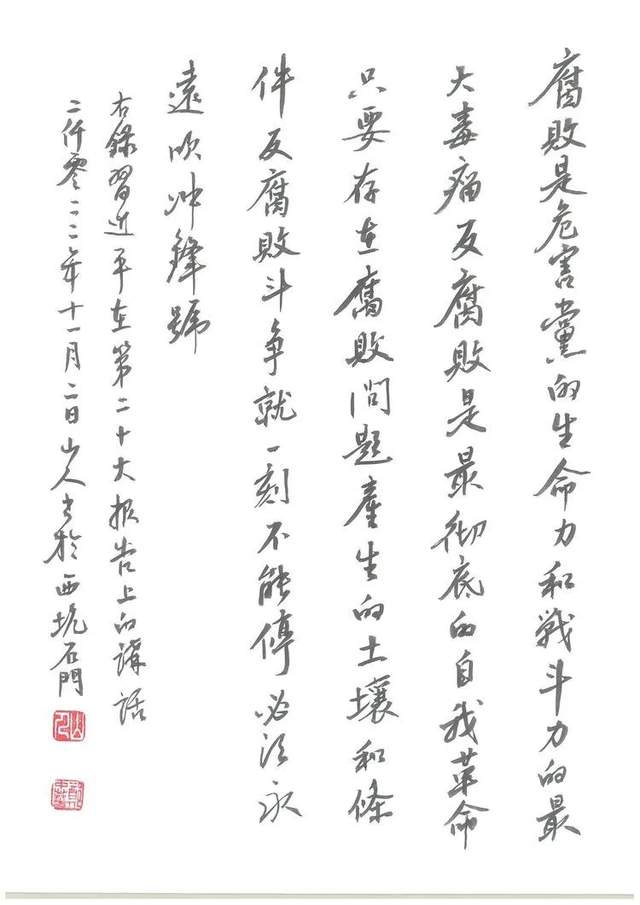 腐敗是危害黨的生命力和戰斗力的最
大毒瘤反腐敗是最彻底的自我革命
只要存在腐敗問題產生的土壤和條
件反腐敗斗争就一刻不能停必须永
遠吹冲鋒號
右錄習近平在第二十大报告上的講話
二仟零二二年十一月二日山人書於西坑石門